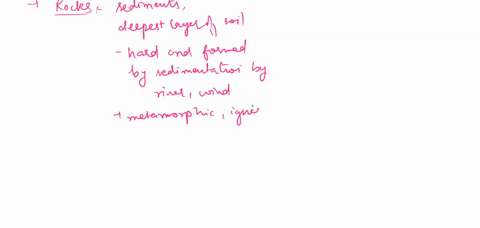 → Rocks :- sediments,
deepest layer of soil
- hard and formed
by sedimentation by
river, wind
→ metamorphic, igne